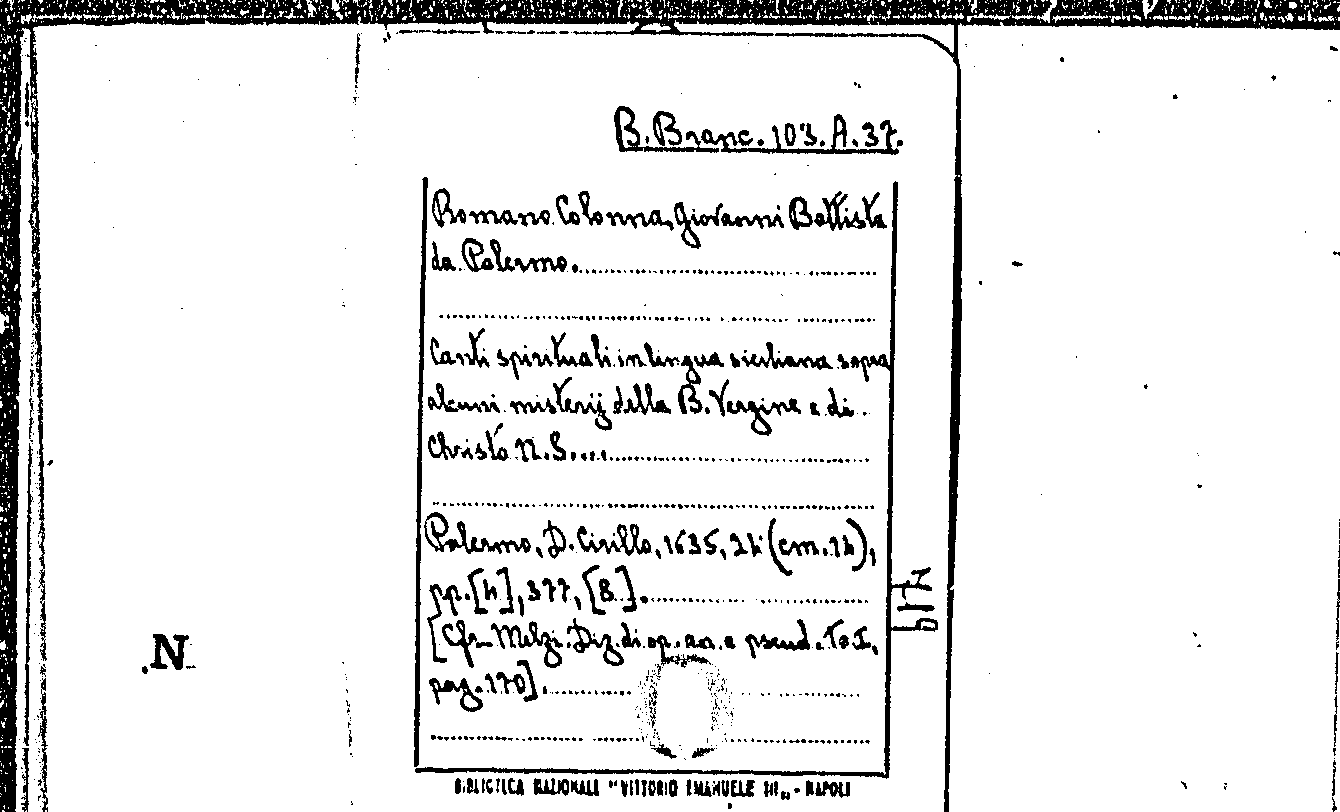 B. Branc. 103. A. 37.
Romano Colonna, Giovanni Battista
da Palermo.
Canti spirituali in lingua siciliana sopra
alcuni misterij della B. Vergine e di
Christo N. S....
Palermo, D. Cirillo, 1635, 24 (cm. 14),
pp. [4], 377, [8].
[Cfr. Melzi. Diz. di op. an. e pseud. To. I,
pag. 170].
BIBLIOTECA NAZIONALE "VITTORIO EMANUELE III„ - NAPOLI
N